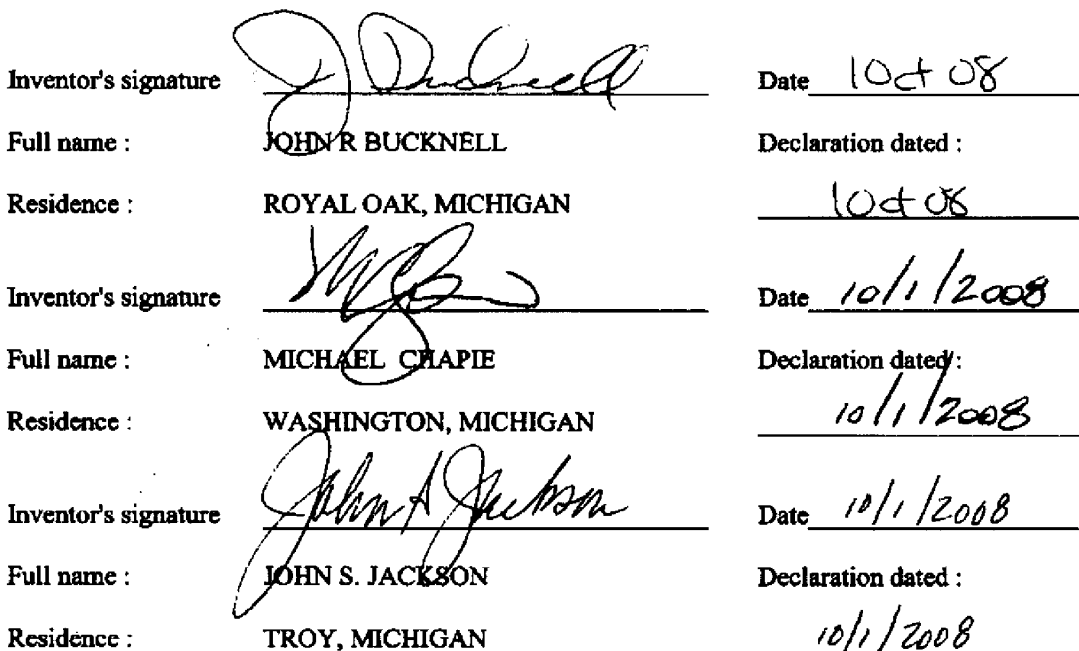 Inventor's signature J Bucknell Date 1Oct 08
Full name : JOHN R BUCKNELL Declaration dated :
Residence : ROYAL OAK, MICHIGAN 1Oct 08
Inventor's signature Date 10/1/2008
Full name : MICHAEL CHAPIE Declaration dated :
Residence : WASHINGTON, MICHIGAN 10/1/2008
Inventor's signature John S Jackson Date 10/1/2008
Full name : JOHN S. JACKSON Declaration dated :
Residence : TROY, MICHIGAN 10/1/2008